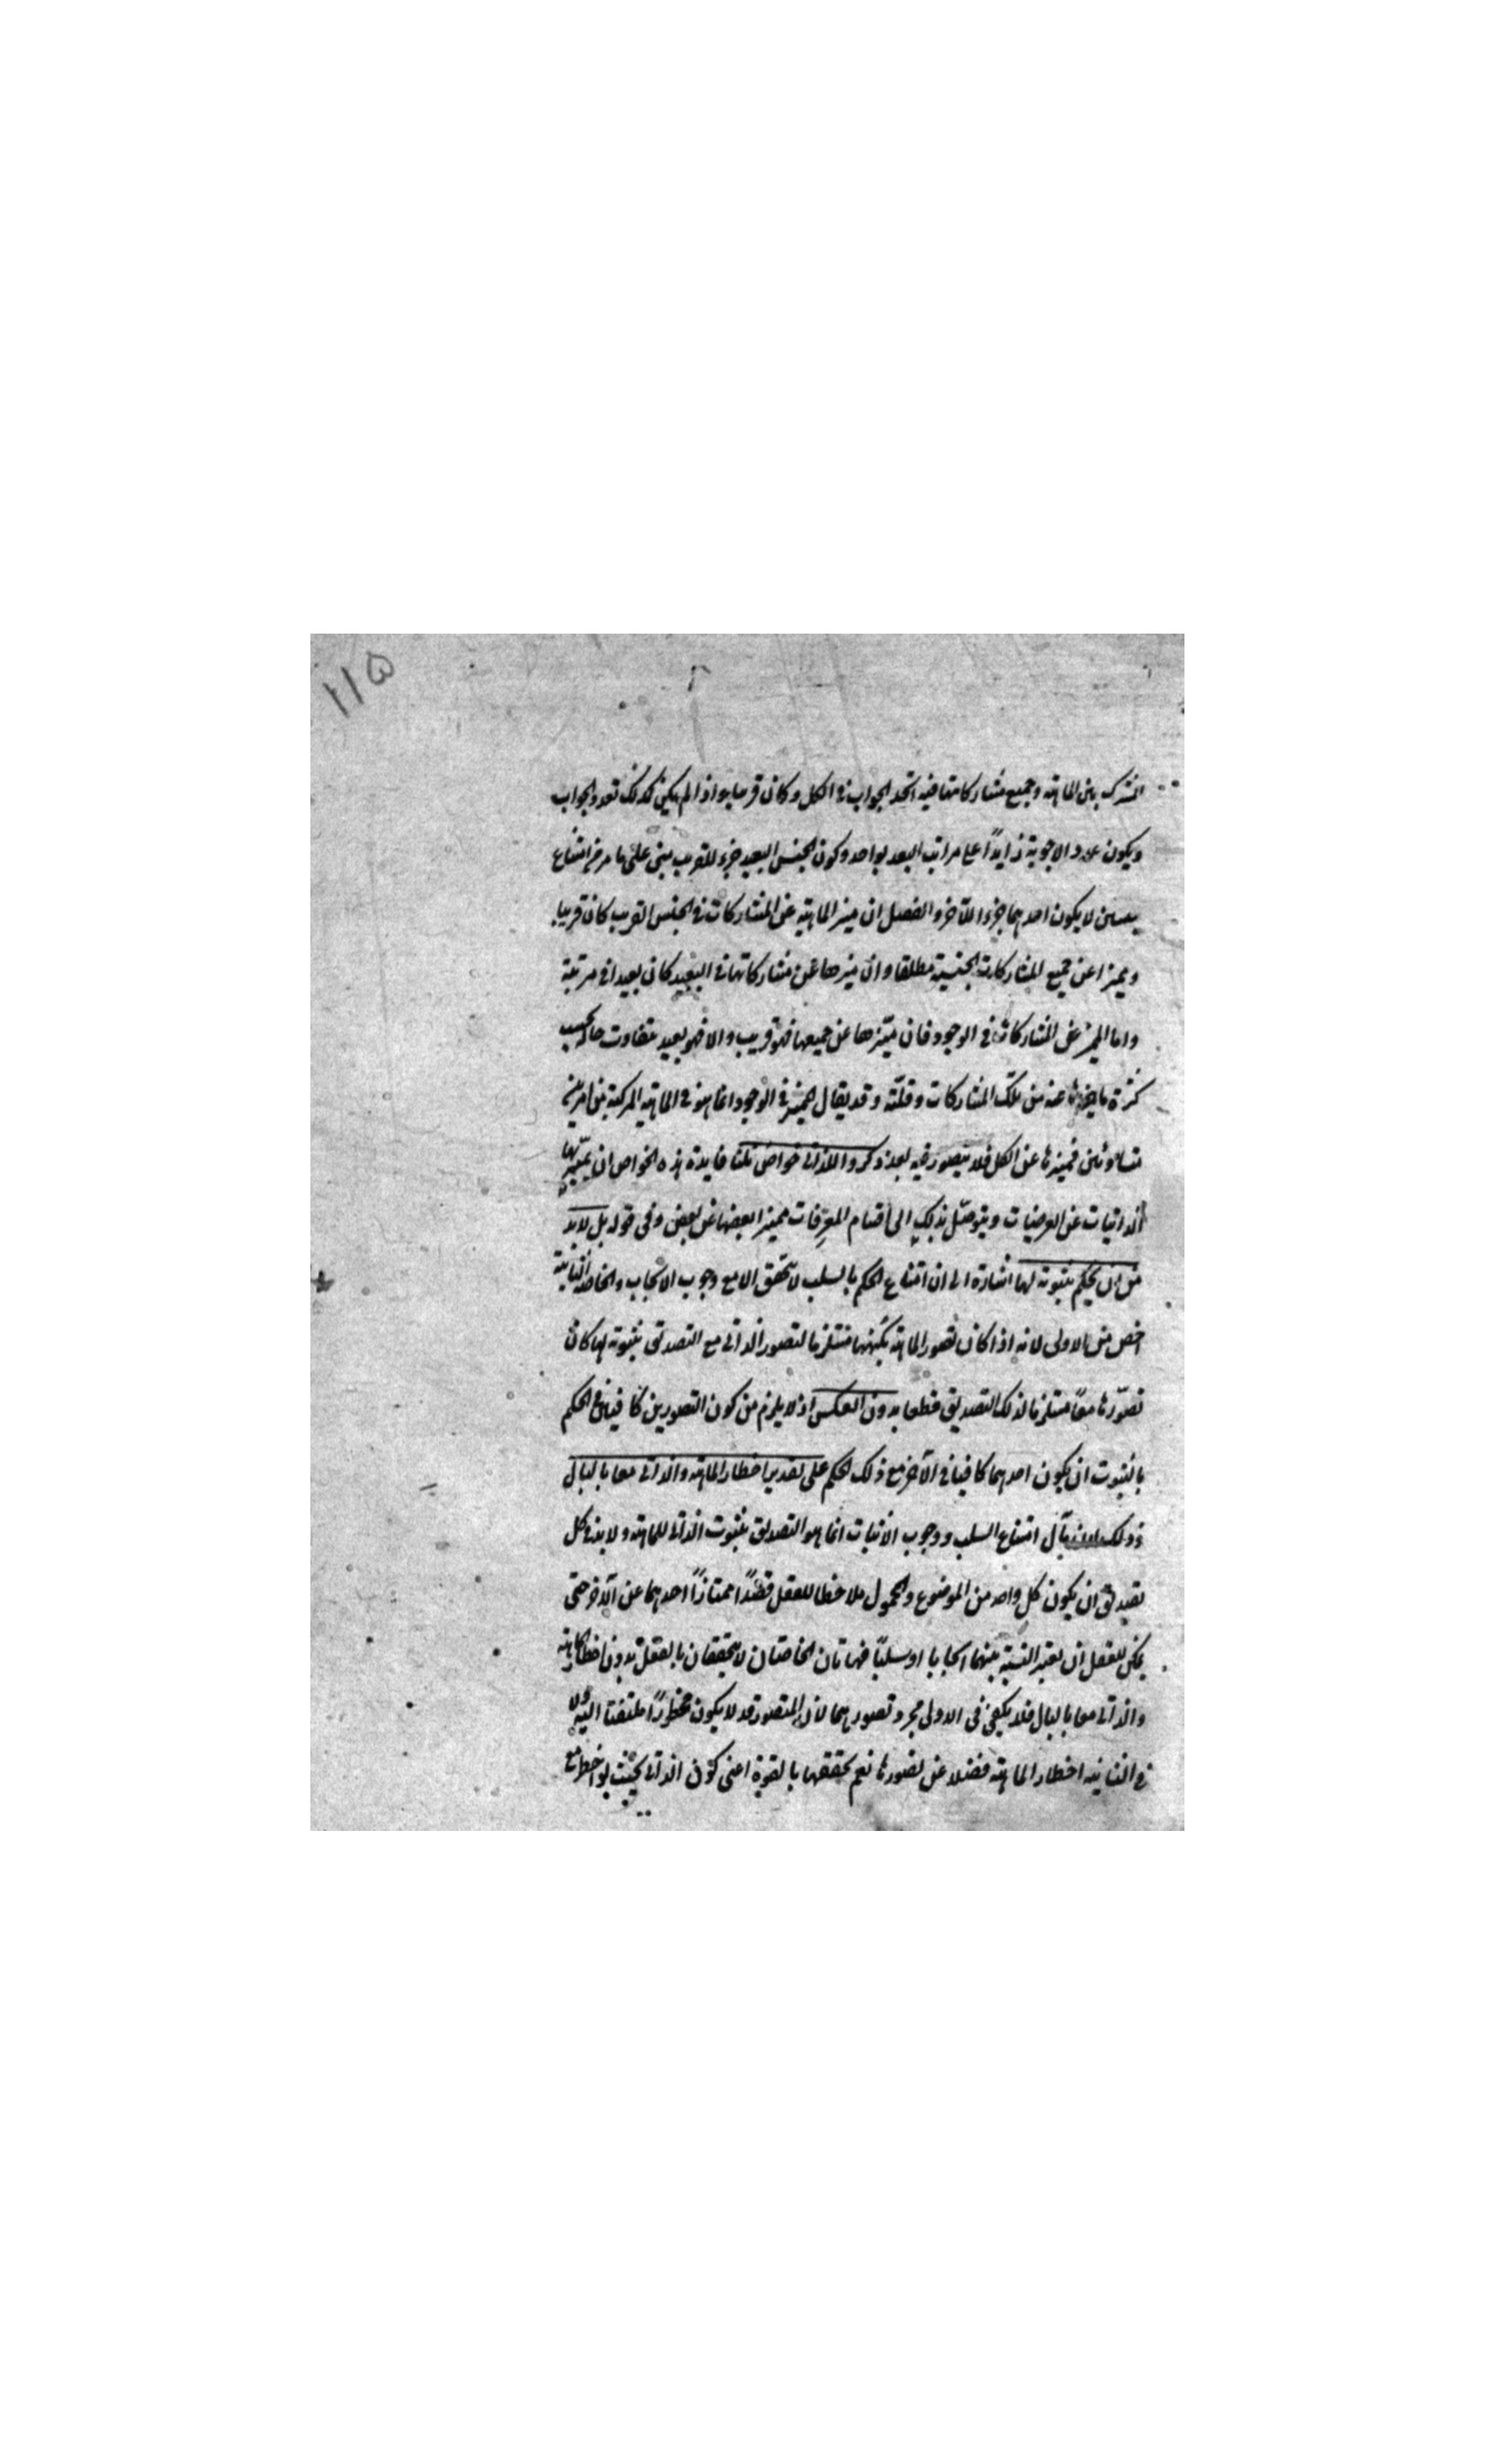 ١١٥
المشترك بين الماهية وجميع مشاركاتها فيه اتحد الجواب في الكل وكان قريبا واذا لم يكن كذلك تعدد الجواب
ويكون عدد الاجوبة زايدًا على مراتب البعد بواحد وكون الجنس البعيد جزء للقريب مبنى على ما مر من امتناع
جنسين لا يكون احدهما جزء اللآخر والفصل ان ميز الماهية عن المشاركات في الجنس القريب كان قريبا
ومميزا عن جميع المشاركات الجنسية مطلقا وان ميزها عن مشاركاتها في البعيد كان بعيدا في مرتبة
واما المميز عن المشاركات في الوجود فان ميّزها عن جميعها فهو قريب والا فهو بعيد متفاوت حاله بحسب
كثرة ما يميزها عنه من تلك المشاركات وقلّته وقد يقال المميز في الوجود انما هو في الماهية المركبة من امرين
متساويين فميزها عن الكل فلا يتصور فيه بعد ذكروا للذاتى خواص ثلثا فايدة هذه الخواص ان يميّز بها
الذاتيات عن العرضيات ويتوصّل بذلك الى أقسام المعرّفات مميزا بعضها عن بعض وفى قوله بل لابد
من ان يحكم بثبوته لها اشارة الى ان امتناع الحكم بالسلب لا يتحقق الا مع وجوب الايجاب والخاصة الثانية
اخص من الاولى لانه اذا كان تصور الماهية بكنهها مستلزما لتصور الذاتى مع التصديق بثبوته لها كان
تصوّرها معًا مستلزما لذلك التصديق قطعا بدون العكس اذ لا يلزم من كون التصورين كافيا في الحكم
بالثبوت ان يكون احدهما كافيا في الآخر مع ذلك الحكم على تقدير اخطار الماهية والذاتى معا بالبال
وذلك لان مآل امتناع السلب ووجوب الاثبات انما هو التصديق بثبوت الذاتى للماهية ولا بد في كل
تصديق ان يكون كل واحد من الموضوع والمحمول ملاحظا للعقل قصدًا ممتازًا احدهما عن الآخر حتى
يمكن للعقل ان يعتبر النسبة بينهما ايجابا او سلبًا فهاتان الخاصتان لا تتحققان بالفعل بدون اخطار الماهية
والذاتى معا بالبال فلا يكفى فى الاولى مجرد تصورهما لان المتصور قد لا يكون مخطورًا ملتفتا اليه ولا
في الثانية اخطار الماهية فضلا عن تصورها نعم تحققهما بالقوة اعنى كون الذاتى بحيث لو اخطر مع